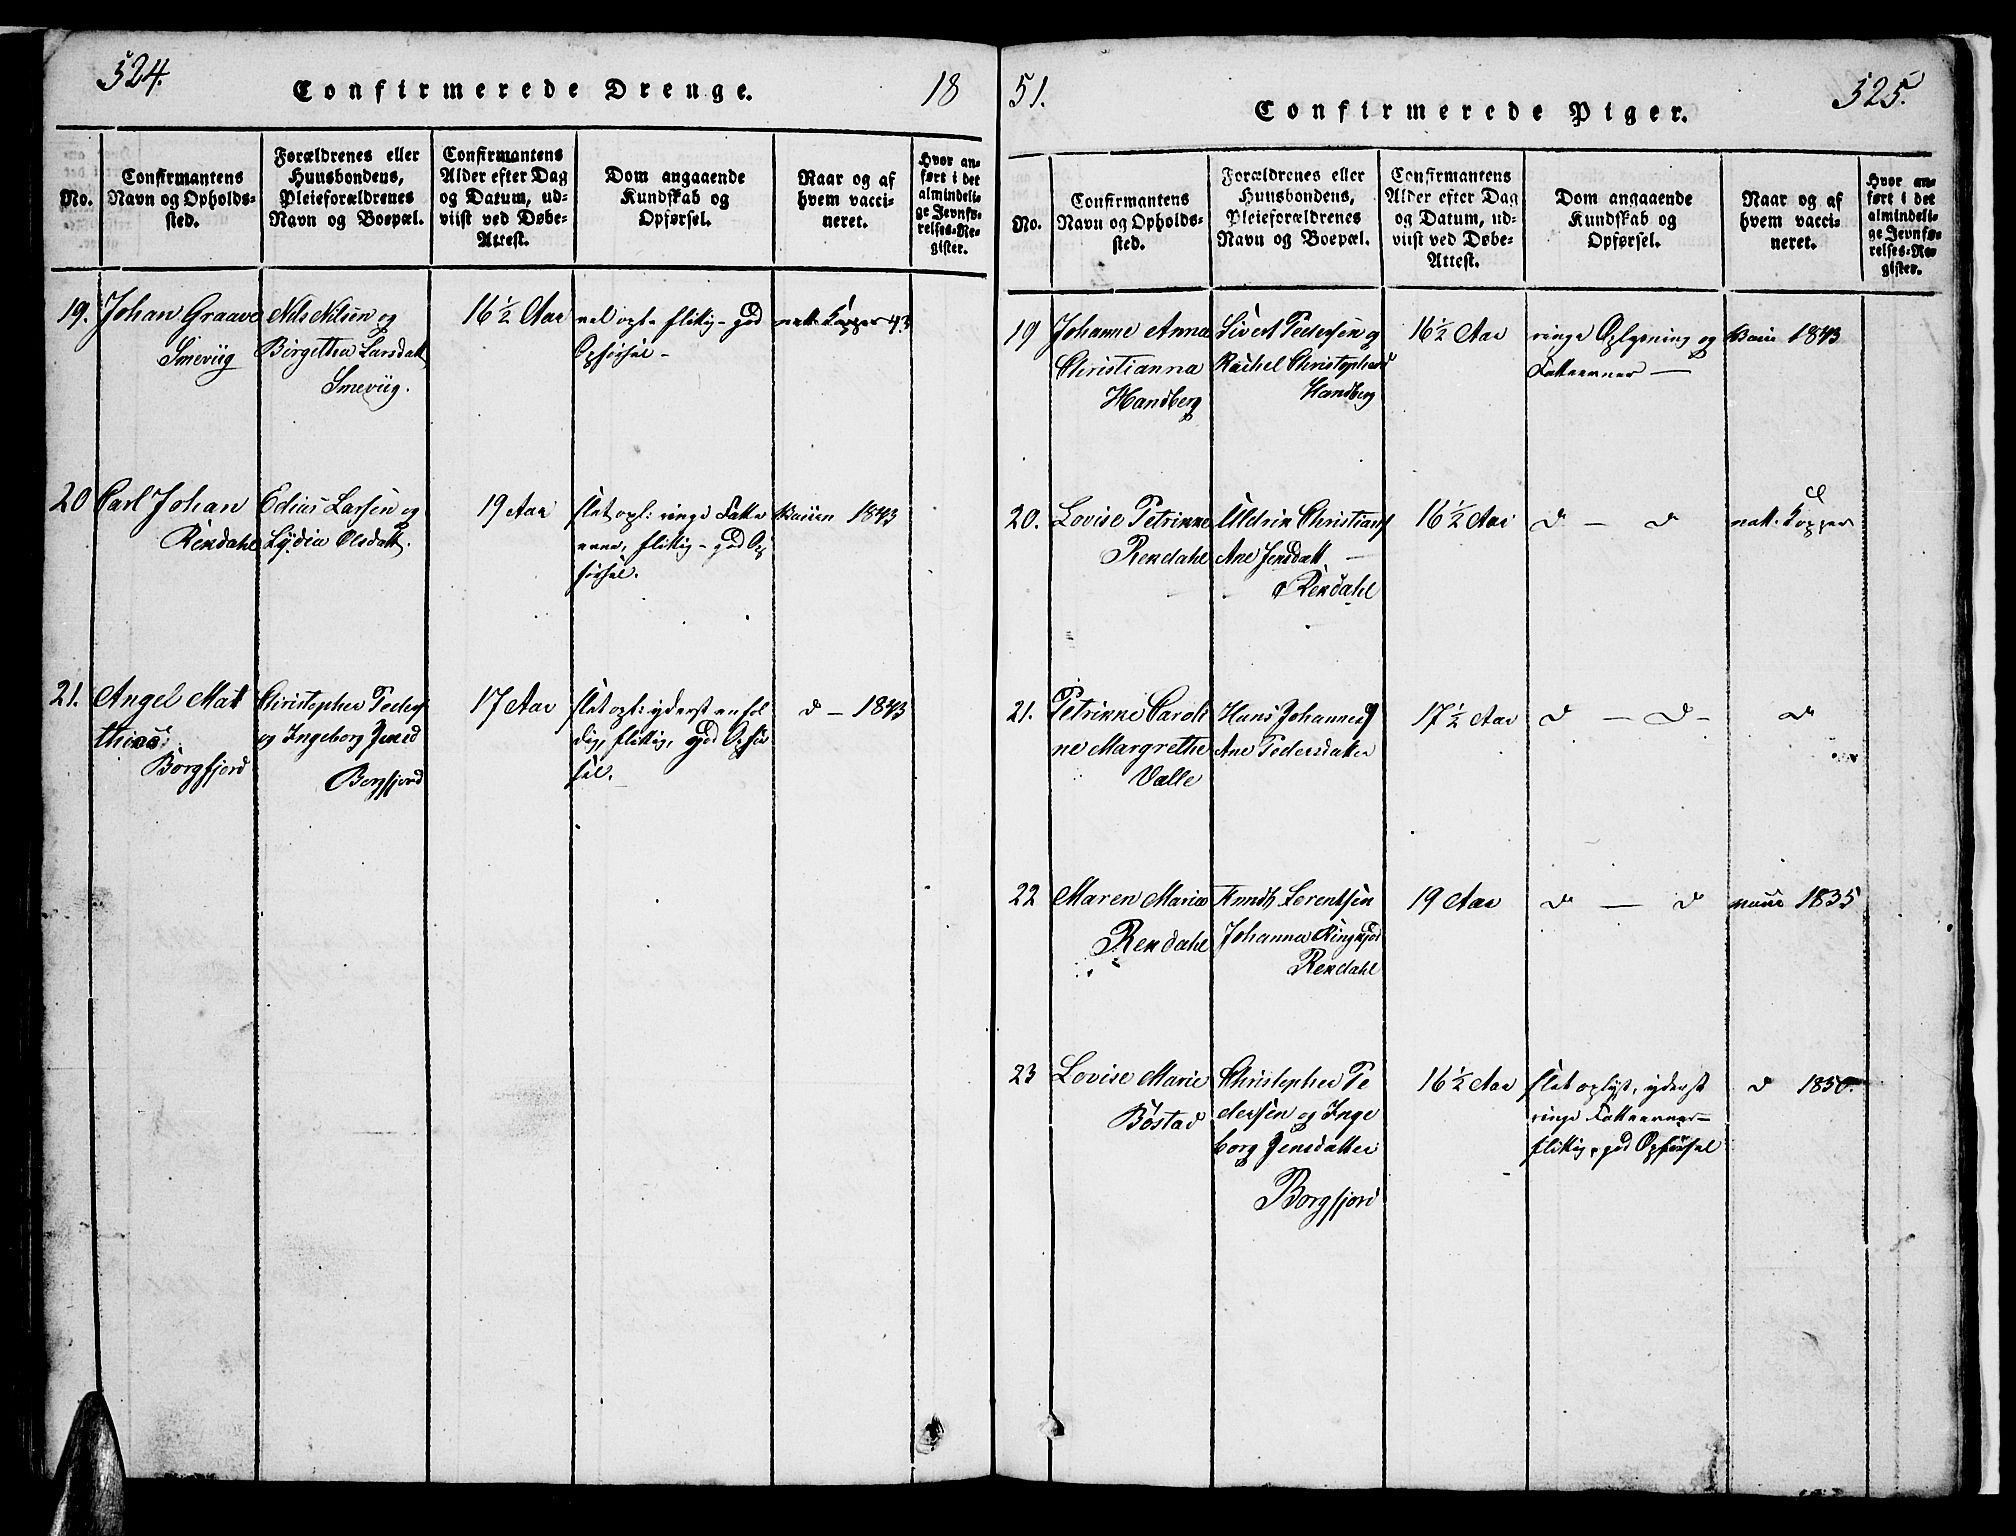 324.
Confirmerede Drenge.
18
No.
Confirmantens
Navn og Opholds-
sted.
Forældrenes eller
Huusbondens,
Pleieforældrenes
Navn og Boepæl.
Confirmantens
Alder efter Dag
og Datum, ud-
viist ved Døbe-
Attest.
Dom angaaende
Kundskab og
Opførsel.
Naar og af
hvem vacci-
neret.
Hvor an-
ført i det
almindeli-
ge Jevnfø-
relses-Re-
gister.
19. Johan Graave
Smeviig
Nils Nilsen og
Birgetha Larsdatt
Smeviig.
16 ½ Aar
vel opl. flittig - god
Opførsel -
natt: Kopper 43
20 Carl Johan
Rendahl
Edias Larsen og
Lydia Olsdatt.
19 Aar
slet opl: ringe Fatte
evne, flittig - god Op
førsel.
1843
21. Angel Mat
thias
Borgfjord
Christopher Peders
og Ingeborg Jensd
Borgfjord
17 Aar
slet opl: yderst enfol
dig, flittig, god Opfør
sel.
d - 1843
51.
Confirmerede Piger.
325.
No.
Confirmantens
Navn og Opholds-
sted.
Forældrenes eller
Huusbondens,
Pleieforældrenes
Navn og Boepæl.
Confirmantens
Alder efter Dag
og Datum, ud-
viist ved Døbe-
Attest.
Dom angaaende
Kundskab og
Opførsel.
Naar og af
hvem vacci-
neret.
Hvor an-
ført i det
almindeli-
ge Jevnfø-
relses-Re-
gister.
19 Johanne Anna
Christianna
Handberg
Sivert Pedersen og
Rachel Christophersd
Handberg
16 ½ Aar
ringe Oplysning og
Fatteevner -
1843
20. Lovise Petrinne
Rendahl
Uldrik Christians
Ane Jensdatt -
Rendahl
16 ½ Aar
d - d
natt. Kopper
21. Petrinne Caroli
ne Margrethe
Valle
Hans Johannes
Ane Pedersdatter
17 ½ Aar
d - d -
d
22 Maren Maria
Rendahl
Arndt Lorentsen
Johanna
Rendahl
19 Aar
d - d
1835
23 Lovise Marie
Bostad
Christopher Pe
dersen og Inge
borg Jensdatter
Borgfjord
16 ½ Aar
slet oplyst, yderst
ringe Fatteevner -
flittig, god Opførsel
d 1850.